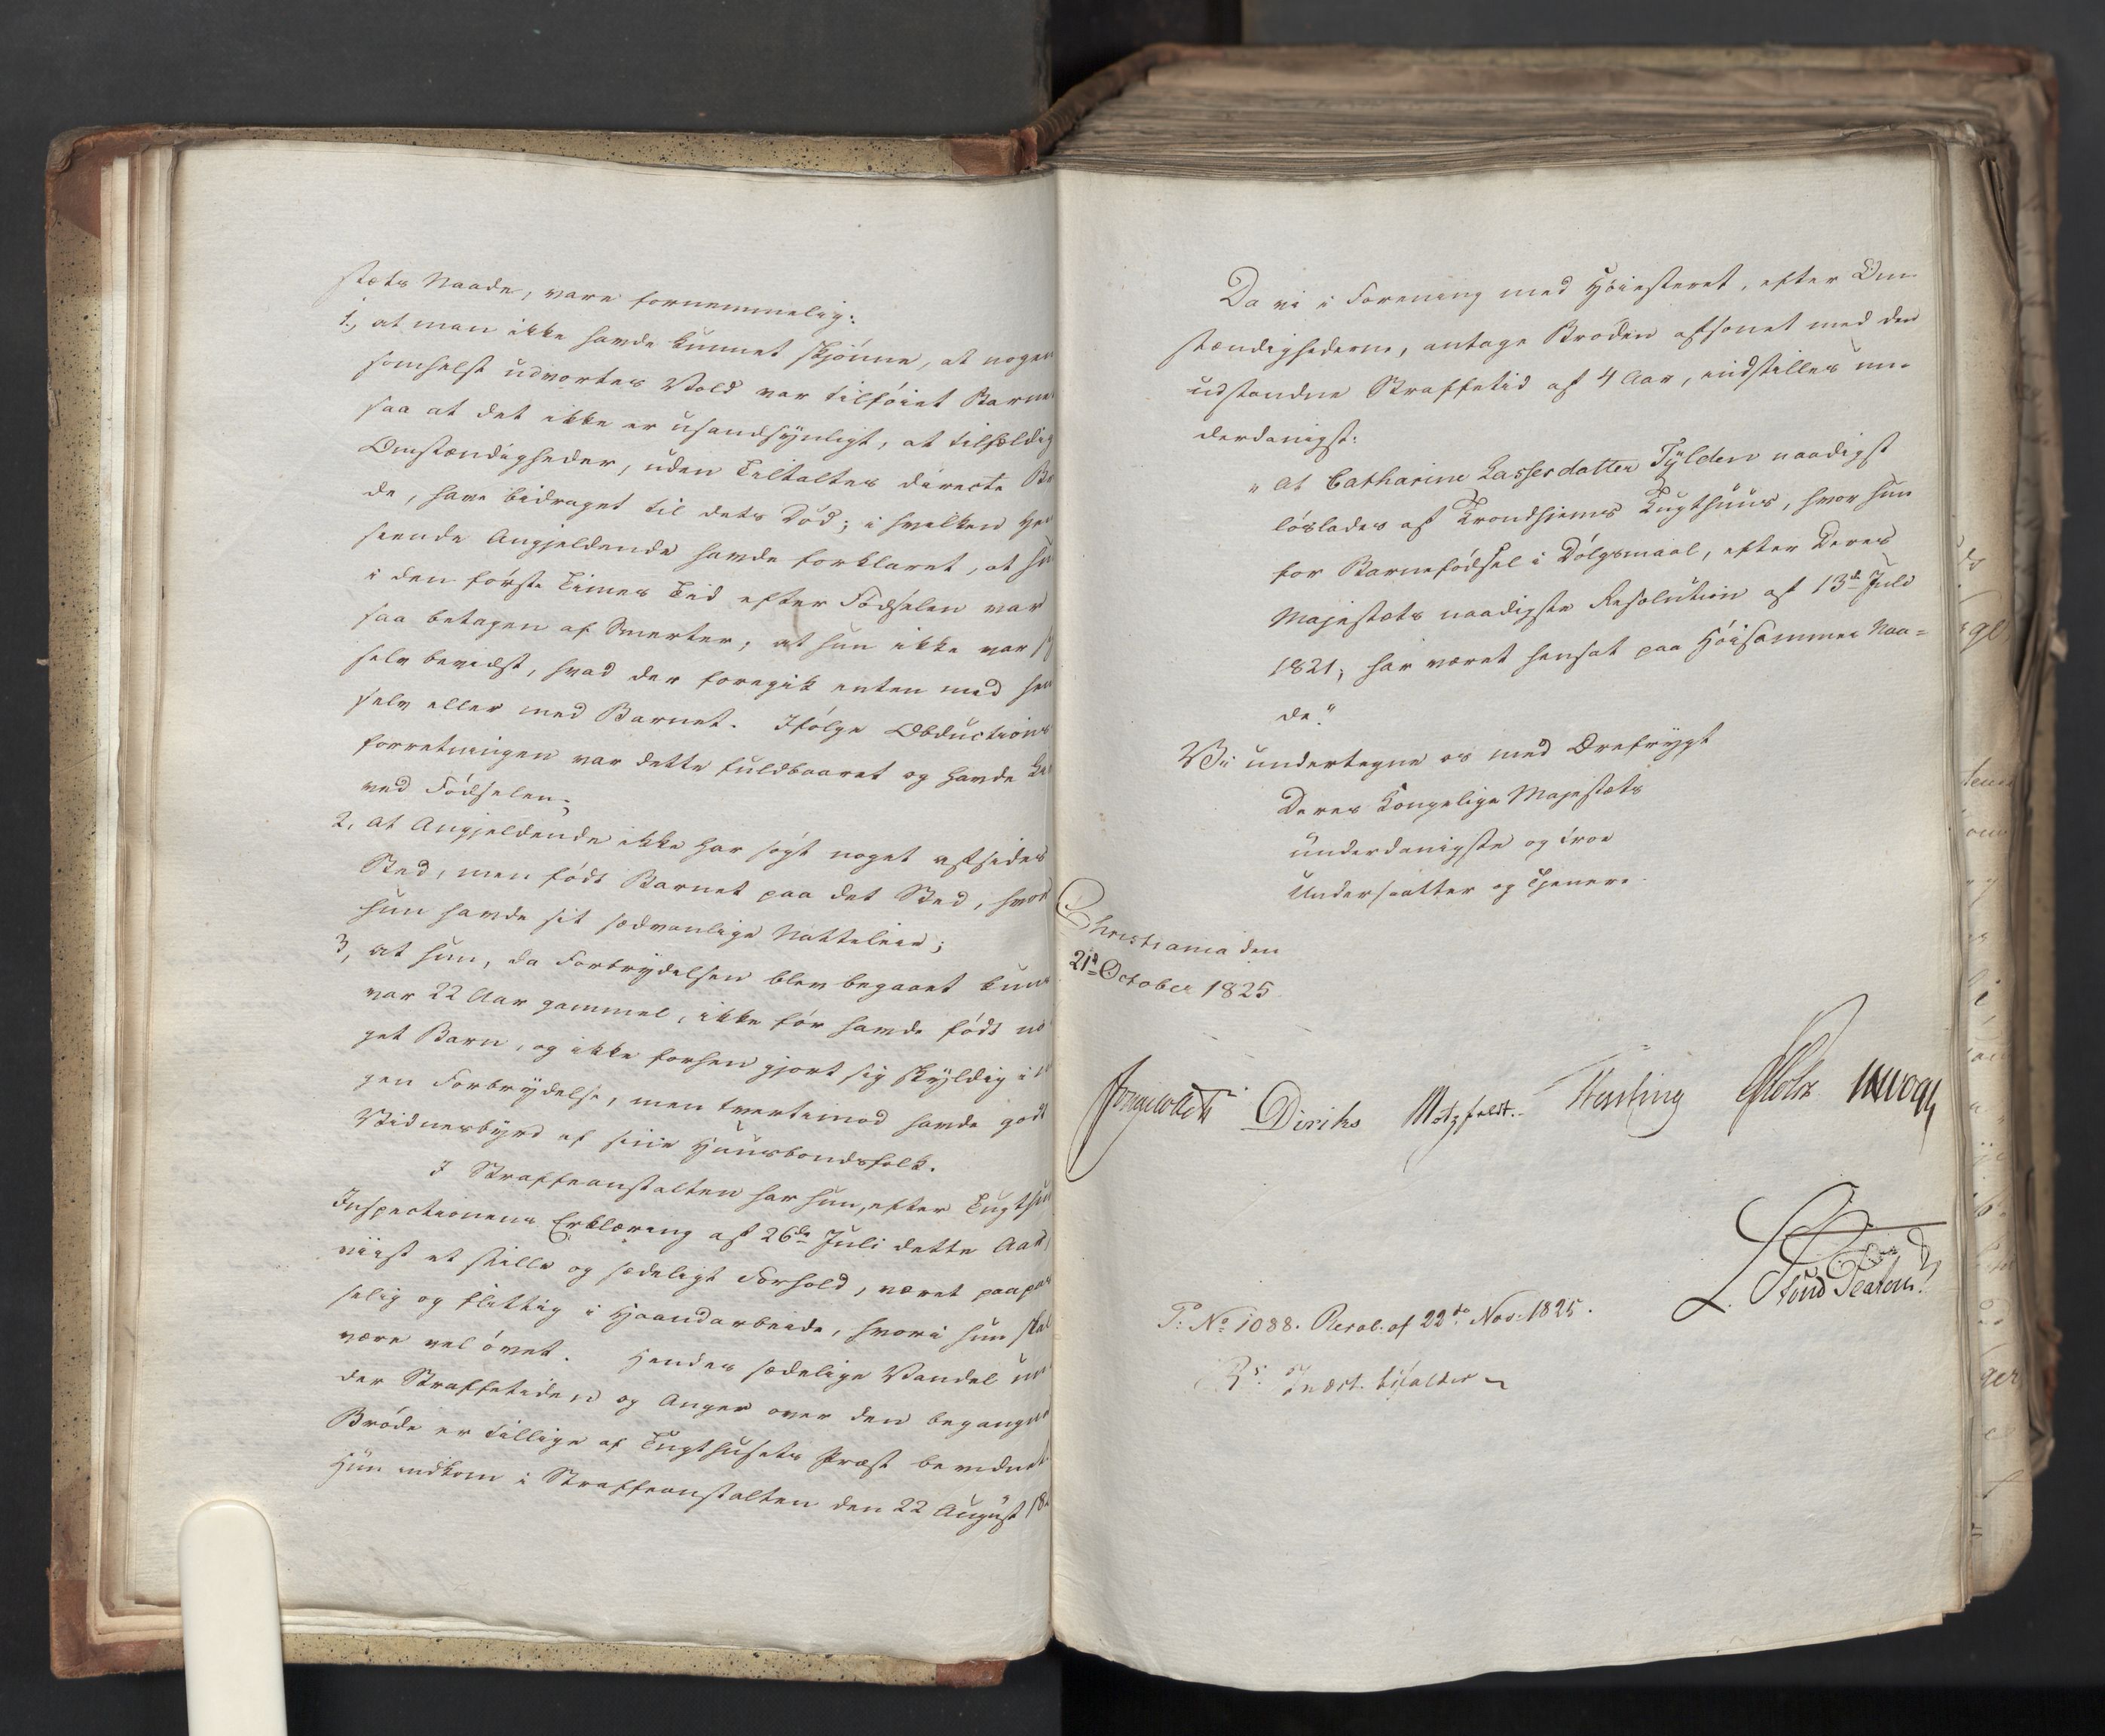 stæts Naade, vare fornemmelig:
1., at man ikke havde kunnet skjönne, at nogen
somhelst udvortes Vold var tilföiet Barne
saa at det ikke er usandsynligt, at tilfældig
Omstændigheder, uden Tiltaltes directe Brö
de, have bidraget til dets Död; i hvilken Hen
seende Angjeldende havde forklaret, at hun
i den förste Times Tid efter Födselen var
saa betagen af Smerter, at hun ikke var sig
selv bevidst, hvad der foregik enten med hen
selv eller med Barnet. Ifölge Obductions
forretningen var dette fuldbaaret og havde le
ved Födselen;
2, at Angjeldende ikke har sögt noget afsides
Sted, men födt Barnet paa det Sted, hvor
hun havde sit sædvanlige Natteleie;
3, at hun, da Forbrydelsen blev begaaet kun
var 22 Aar gammel, ikke för havde födt no
get Barn, og ikke forhen gjort sig skyldig i no
gen Forbrydelse, men tvertimod havde godt
Vidnesbyrd af sine Huusbondsfolk.
I Straffeanstalten har hun, efter Tugthuu
Inspectionens Erklæring af 26de Juli dette Aar,
viist et stille og sædeligt Forhold, været paapas
selig og flittig i Haandarbeide, hvori hun skal
være vel övet. Hendes sædelige Vandel un
der Straffetiden og Anger over den begangne
Bröde er tillige af Tugthusets Præst bevidnet
Hun indkom i Straffeanstalten den 22 August 182
Da vi i Forening med Höiesteret, efter Om
stændighederne, antage Bröden afsonet med den
udstandne Straffetid af 4 Aar, indstilles un-
derdanigst:
"at Catharine Lassesdatter Tylden naadigst
löslades af Trondhjems Tugthuus, hvor hun
for Barnefödsel i Dölgsmaal, efter Deres
Majestæts naadigste Resolution af 13de Juli
1821, har været hensat paa Höisamme Naa=
de."
Vi undertegne os med Ærefrygt
Deres Kongelige Majestæts
underdanigste og troe
Undersaatter og Tjenere.
Christiania den
21de October 1825
Diriks Motzfeldt. Hersleb Holst
P: No 1088. Resol: af 22de Nov: 1825.
Indst. bifaldes